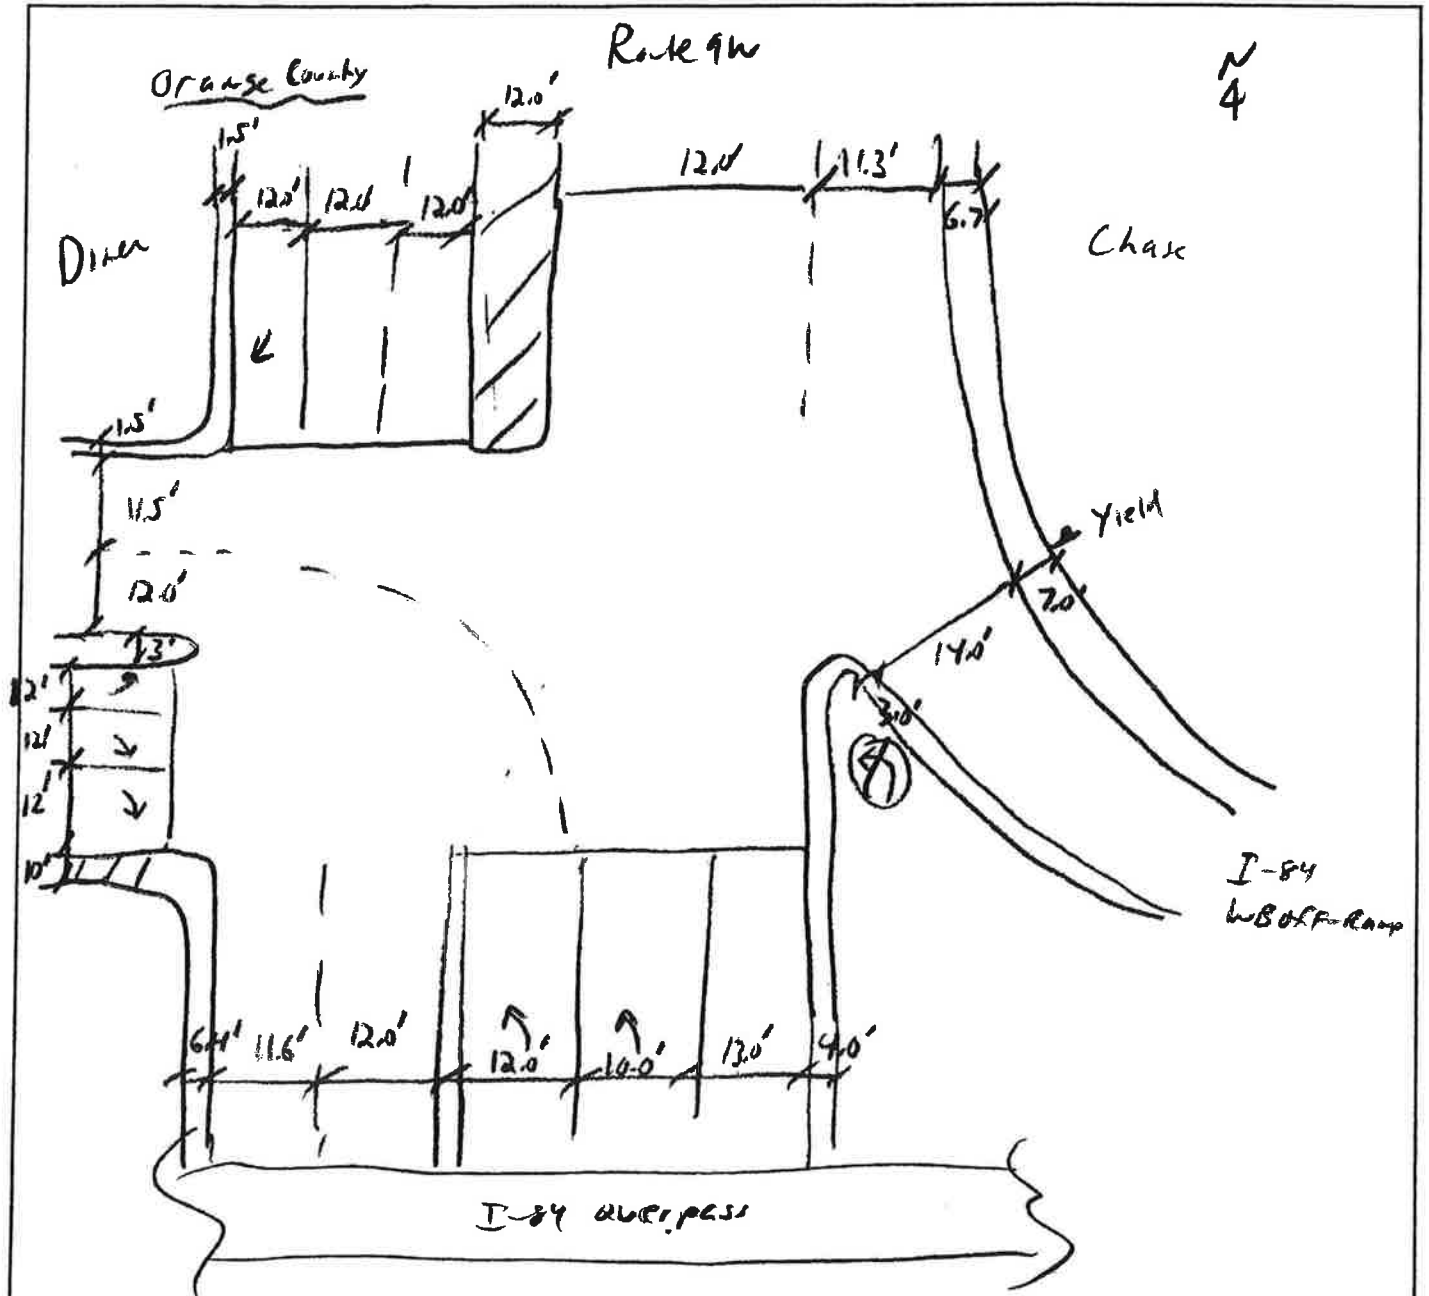 Route 9W
N
Orange County
12.0'
1.5'
12.0'
11.3'
12.0'
12.0'
12.0'
6.7
Diner
Chase
1.5'
11.5'
Yield
12.0'
7.0'
14.0'
3'
12'
3.0'
12'
12'
10'
I-84
WB Off-Ramp
6.4'
11.6'
12.0'
12.0'
10.0'
13.0'
4.0'
I-84 overpass